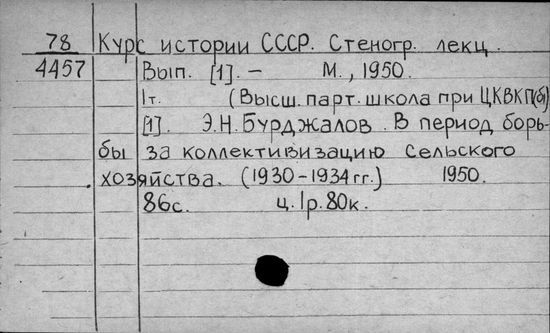 78 Курс истории СССР. Стеногр. лекц.
4457 Вып. [1]. – М., 1950.
1т. (Высш. парт. школа при ЦКВКП(б)
[1]. Э.Н. Бурджалов. В период борь-
бы за коллективизацию сельского
хозяйства. (1930–1934 гг.) 1950.
86с. ц. 1р. 80к.